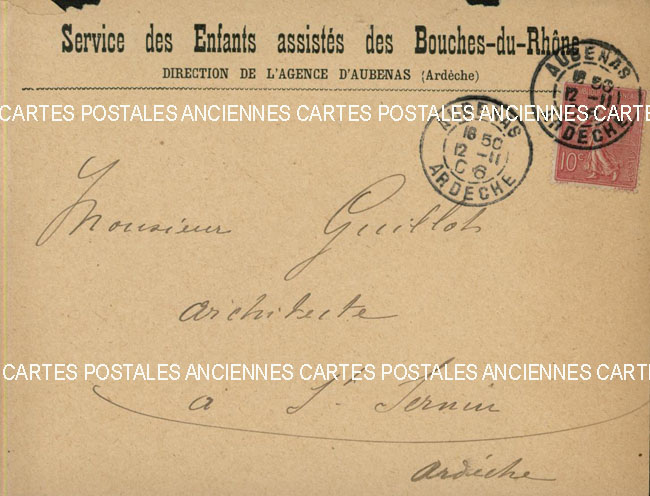 Service des Enfants assistés des Bouches-du-Rhône
DIRECTION DE L'AGENCE D'AUBENAS (Ardèche)
AUBENAS
16 50
12 -11
ARDECHE
10c
CARTES POSTALES ANCIENNES CARTES POSTALES ANCIENNES CARTES
AUBENAS
16 50
12 -11
06
ARDECHE
Monsieur Guillot
architecte
CARTES POSTALES ANCIENNES CARTES POSTALES ANCIENNES CARTE
à St Sernin
Ardèche